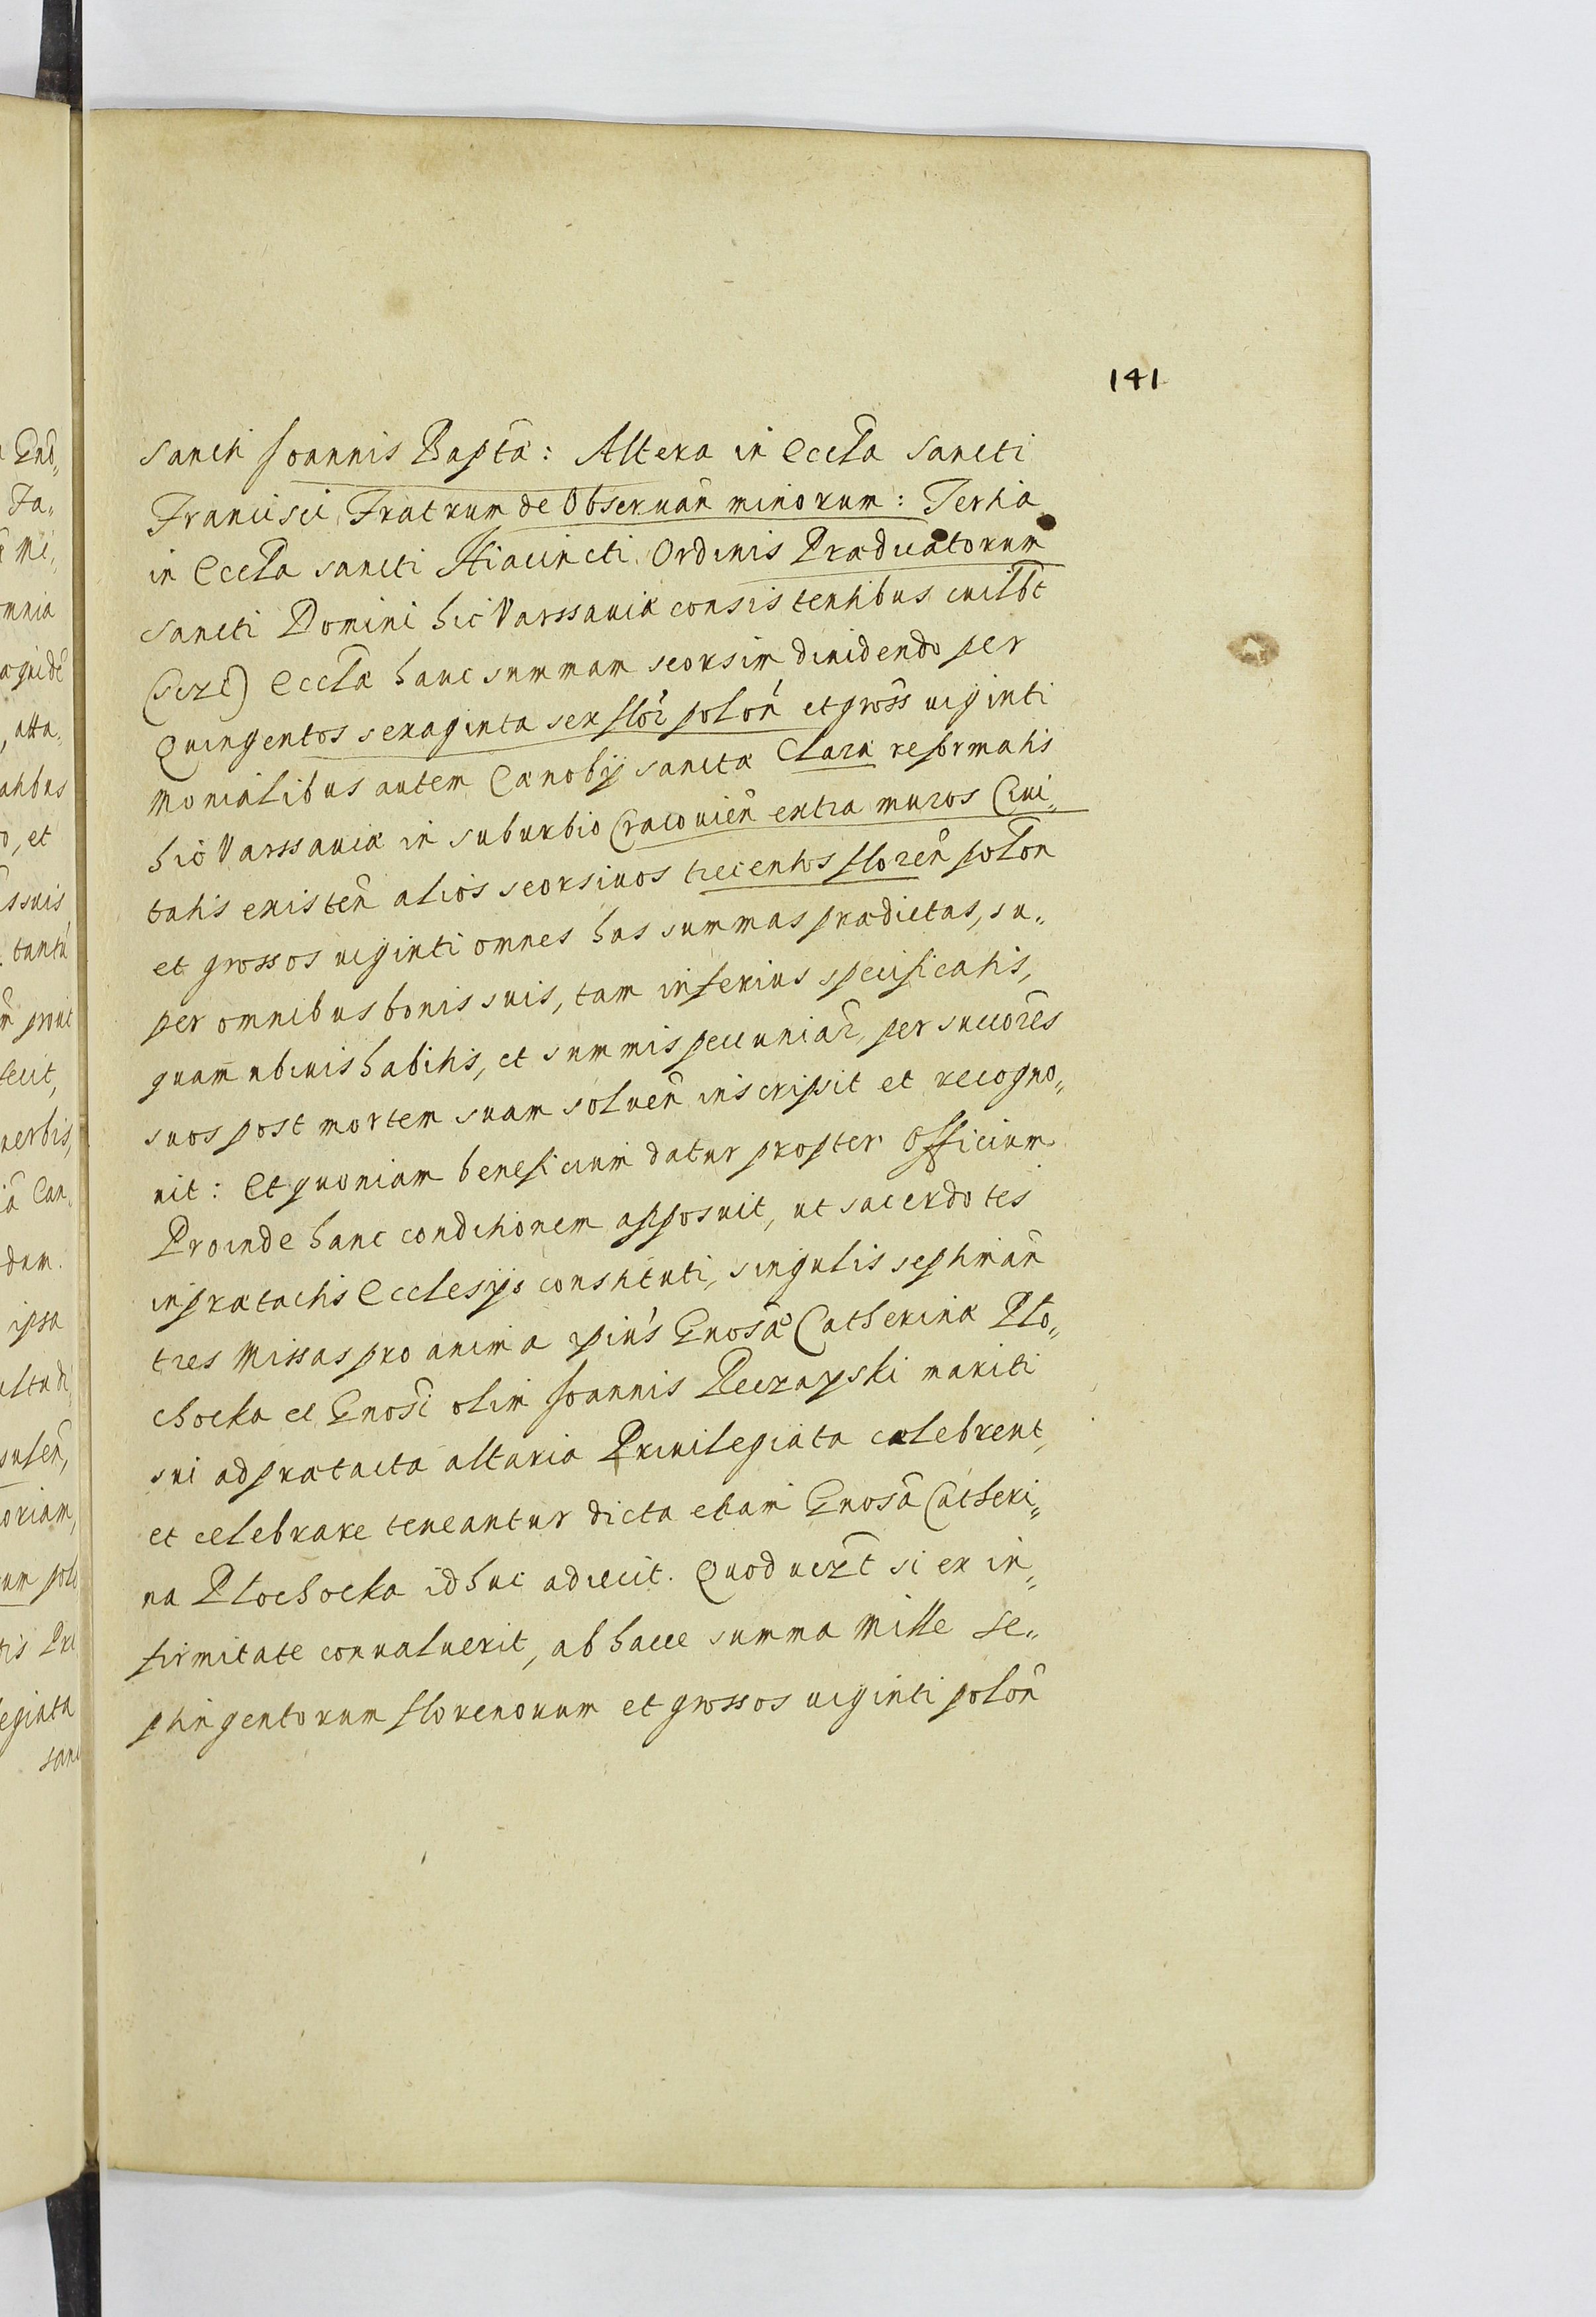 141
Sancti Joannis Baptã: Altera in Eccl̃a Sancti
Francisci Fratrum de Obseruañ minorum: Tertia
in Eccl̃a sancti Hiacincti Ordinis Prædicatorum
Sancti Domini hic Varssauiæ consistentibus cuilbt̃
(scze) Eccl̃æ hanc summam seorsim diuidendo per
Quingentos sexaginta sex flor̃ poloń et gross̃ uiginti
Monialibus autem Cænobij sanctæ Claræ reformatis
hic Varssauiæ in suburbio Cracouień extra muros Ciui„
tatis existeñ alios seorsiuos trecentos floreñ poloñ
et grossos uiginti omnes has summas prædictas, su„
per omnibus bonis suis, tam inferius specificatis,
quam ubiuis habitis, et summis pecuniar̃, per succõres
suos post mortem suam solueñ inscripsit et recogno„
uit: Et quoniam beneficium datur propter Officium
Proinde hanc conditionem apposuit, ut sacerdotes
in prætactis Ecclesijs constituti, singulis septimañ
tres Missas pro anima ipiús Gnosæ̃ Catherinæ Plo„
chocka et Gnosĩ olim Joannis Pieczapski mariti
sui ad prætacta altaria Priuilegiata celebrent,
et celebrare teneantur dicta etiam Gnosã Catheri„
na Plochocka id huc adiecit. Quod uezt̃ si ex in„
firmitate conualuerit, ab hacce summa Mille se„
ptingentorum florenorum et grossos uiginti poloñ